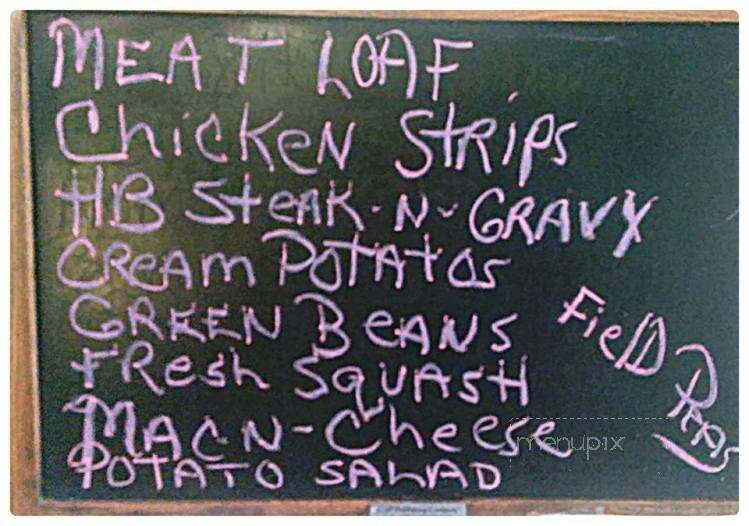 MEAT LOAF
Chicken Strips
HB Steak-N-GRAVY
CREAM POTATOS
GREEN BEANS
FRESh SQUASH
MACN-Cheese
POTATO SALAD
FielD Peas
menupix